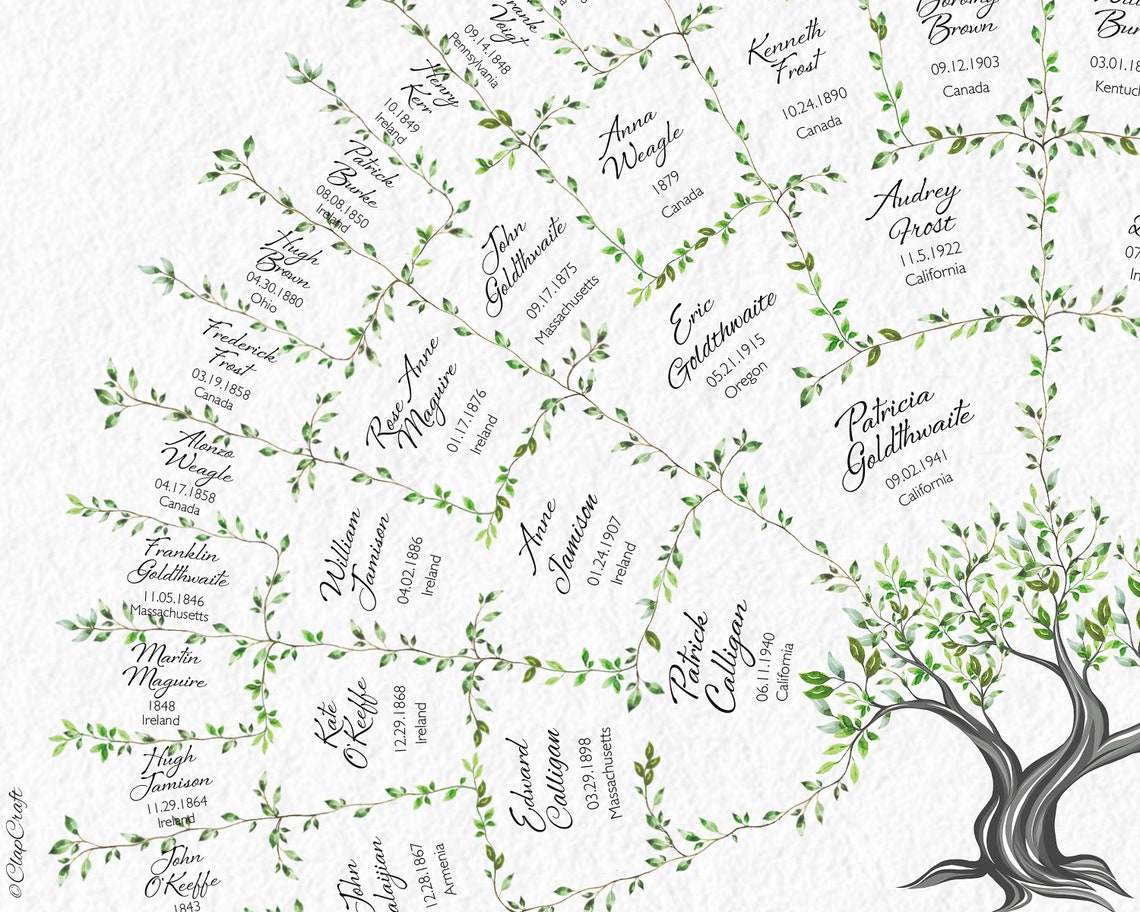 Frank
Voigt
09.14.1848
Pennsylvania
Henry
Kerr
10.1849
Ireland
Patrick
Burke
08.08.1850
Ireland
Hugh
Brown
04.30.1880
Ohio
Frederick
Frost
03.19.1858
Canada
Alonzo
Weagle
04.17.1858
Canada
Franklin
Goldthwaite
11.05.1846
Massachusetts
Martin
Maguire
1848
Ireland
Hugh
Jamison
11.29.1864
Ireland
John
O'Keeffe
1843
Kenneth
Frost
10.24.1890
Canada
Anna
Weagle
1879
Canada
John
Goldthwaite
09.17.1875
Massachusetts
Rose Anne
Maguire
01.17.1876
Ireland
William
Jamison
04.02.1886
Ireland
Kate
O'Keeffe
12.29.1868
Ireland
John
12.28.1867
Armenia
Brown
09.12.1903
Canada
03.01.18
Kentuc
Audrey
Frost
11.5.1922
California
07
In
Eric
Goldthwaite
05.21.1915
Oregon
Anne
Jamison
01.24.1907
Ireland
Edward
Calligan
03.29.1898
Massachusetts
Patricia
Goldthwaite
09.02.1941
California
Patrick
Calligan
06.11.1940
California
©ClapCraft